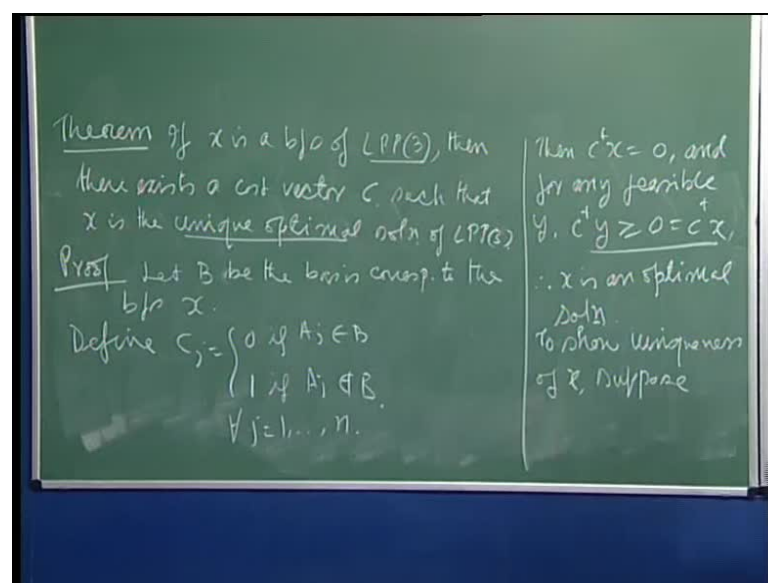 Theorem If x is a bfs of LPP(3), then
there exists a cost vector C, such that
x is the unique optimal soln of LPP(3)
Proof Let B be the basis corresp. to the
bfs x.
Define Cj = { 0 if Aj ∈ B
1 if Aj ∉ B.
∀ j=1,..., n.
Then cᵗx = 0, and
for any feasible
y, cᵗy ≥ 0 = cᵗx,
∴ x is an optimal
soln.
To show uniqueness
of x, suppose